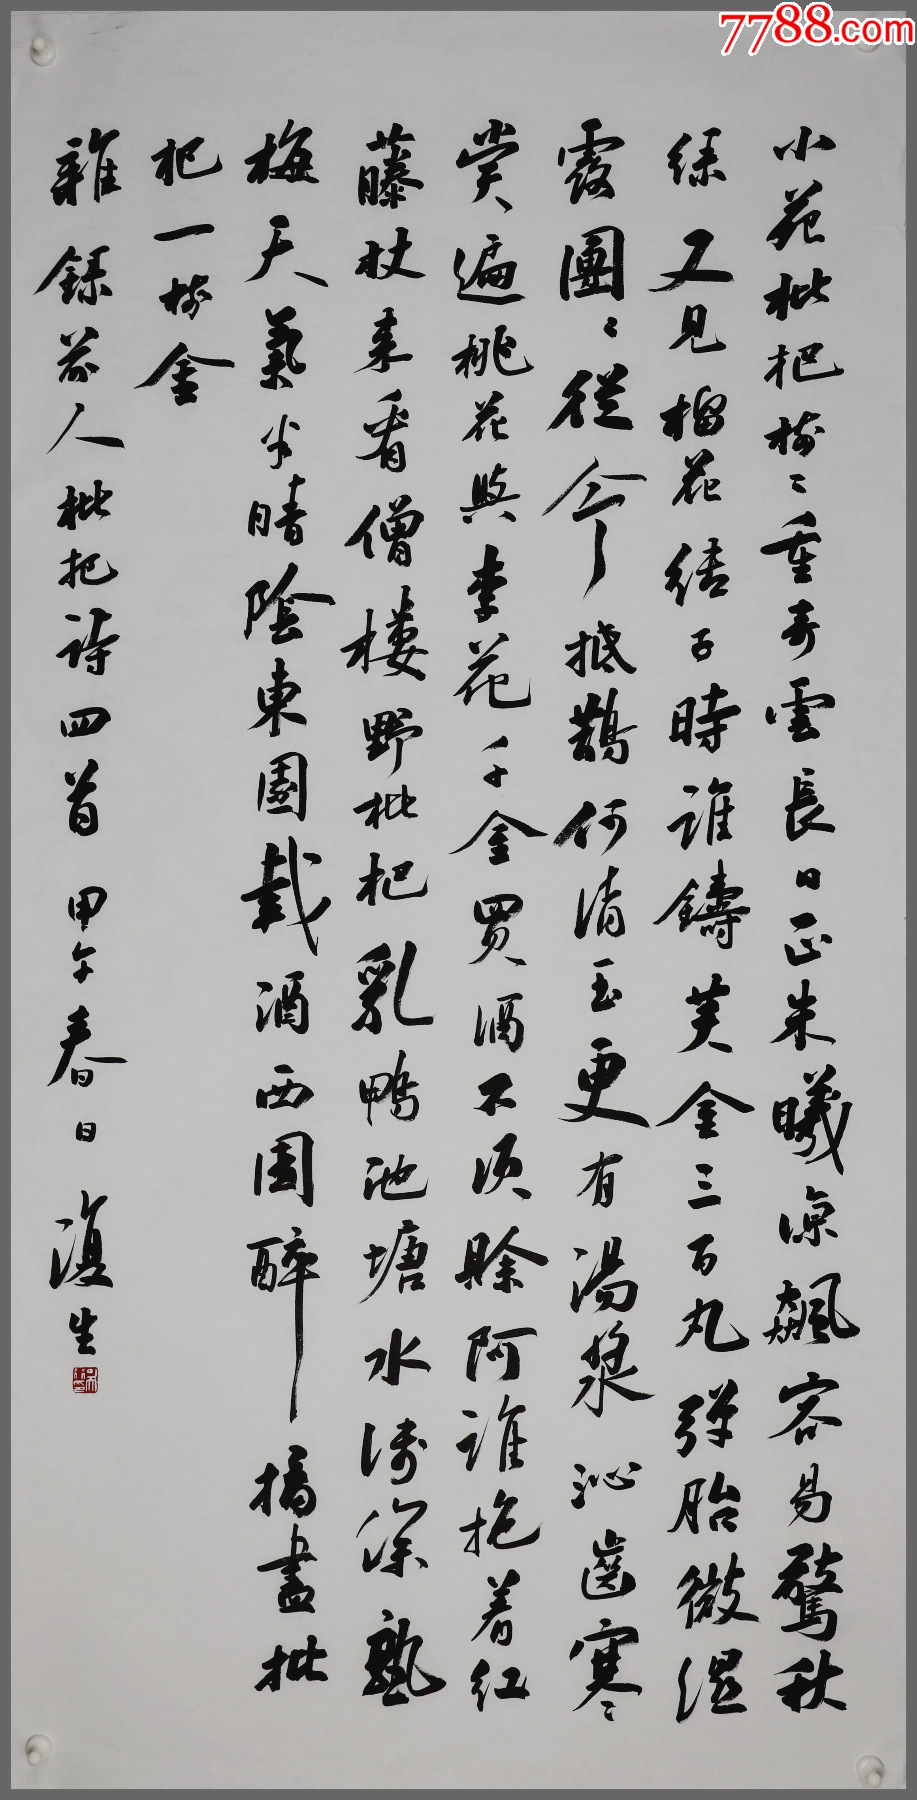 小苑枇杷樹〻重奇雲長日正朱曦涼飆容易驚秋
緑又見榴花結子時誰鑄黄金三百丸彈胎微湿
露團〻從今抵鵲何消玉更有湯漿沁齒寒〻
賞遍桃花與李花千金買酒不須賒阿誰抱着紅
藤杖来看僧楼野枇杷乳鴨池塘水淺深熟
梅天氣半晴陰東園載酒西園醉摘盡枇
杷一樹金
雜録前人枇杷詩四首 甲午春日 復生
7788.com